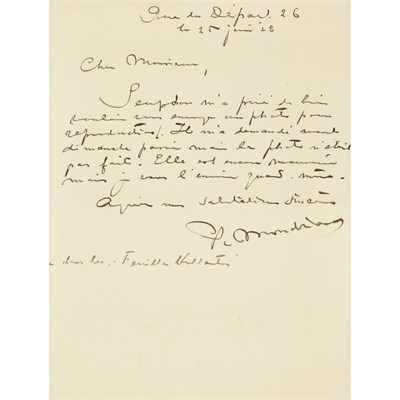 Rue du Départ 26
le 25 juin 28
Cher Monsieur,
Seuphor m'a prié de bien
vouloir vous envoyer un photo pour
reproduction. Il m'a demandé avant
dimanche passé mais la photo n'était
pas fait. Elle est encore mauvaise
mais je vous l'envoie quand-même.
Agréez mes salutations sincères
P. Mondrian
dans les "Feuilles Volantes"